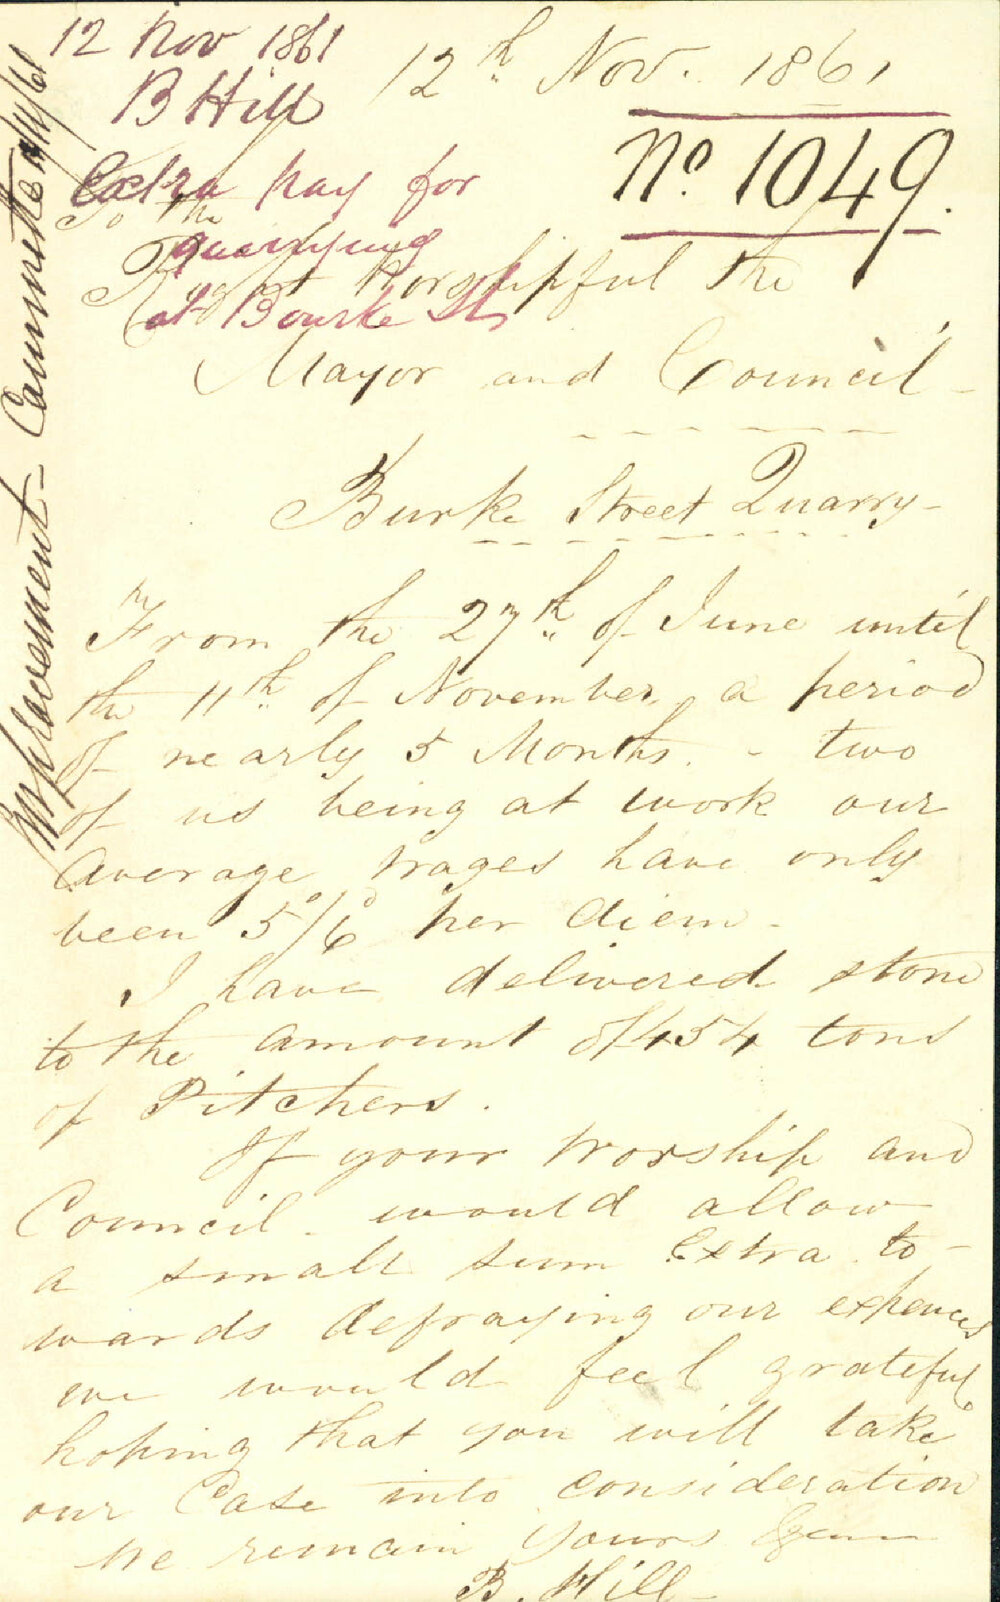 12 Nov 1861
B Hill
Extra pay for
quarrying
at Bourke St
Improvement Committee
12th Nov. 1861
No 1049.
To the
Right Worshipful the
Mayor and Council -
Burke Street Quarry -
From the 27th of June until
the 11th of November, a period
of nearly 5 Months. - two
of us being at work our
average wages have only
been 5s/6d per diem -
I have delivered stone
to the amount of 454 tons
of Pitchers.
If your Worship and
Council would allow
a small sum Extra to -
wards defraying our expences
we would feel grateful
hoping that you will take
our Case into consideration
We remain Yours
B. Hill -